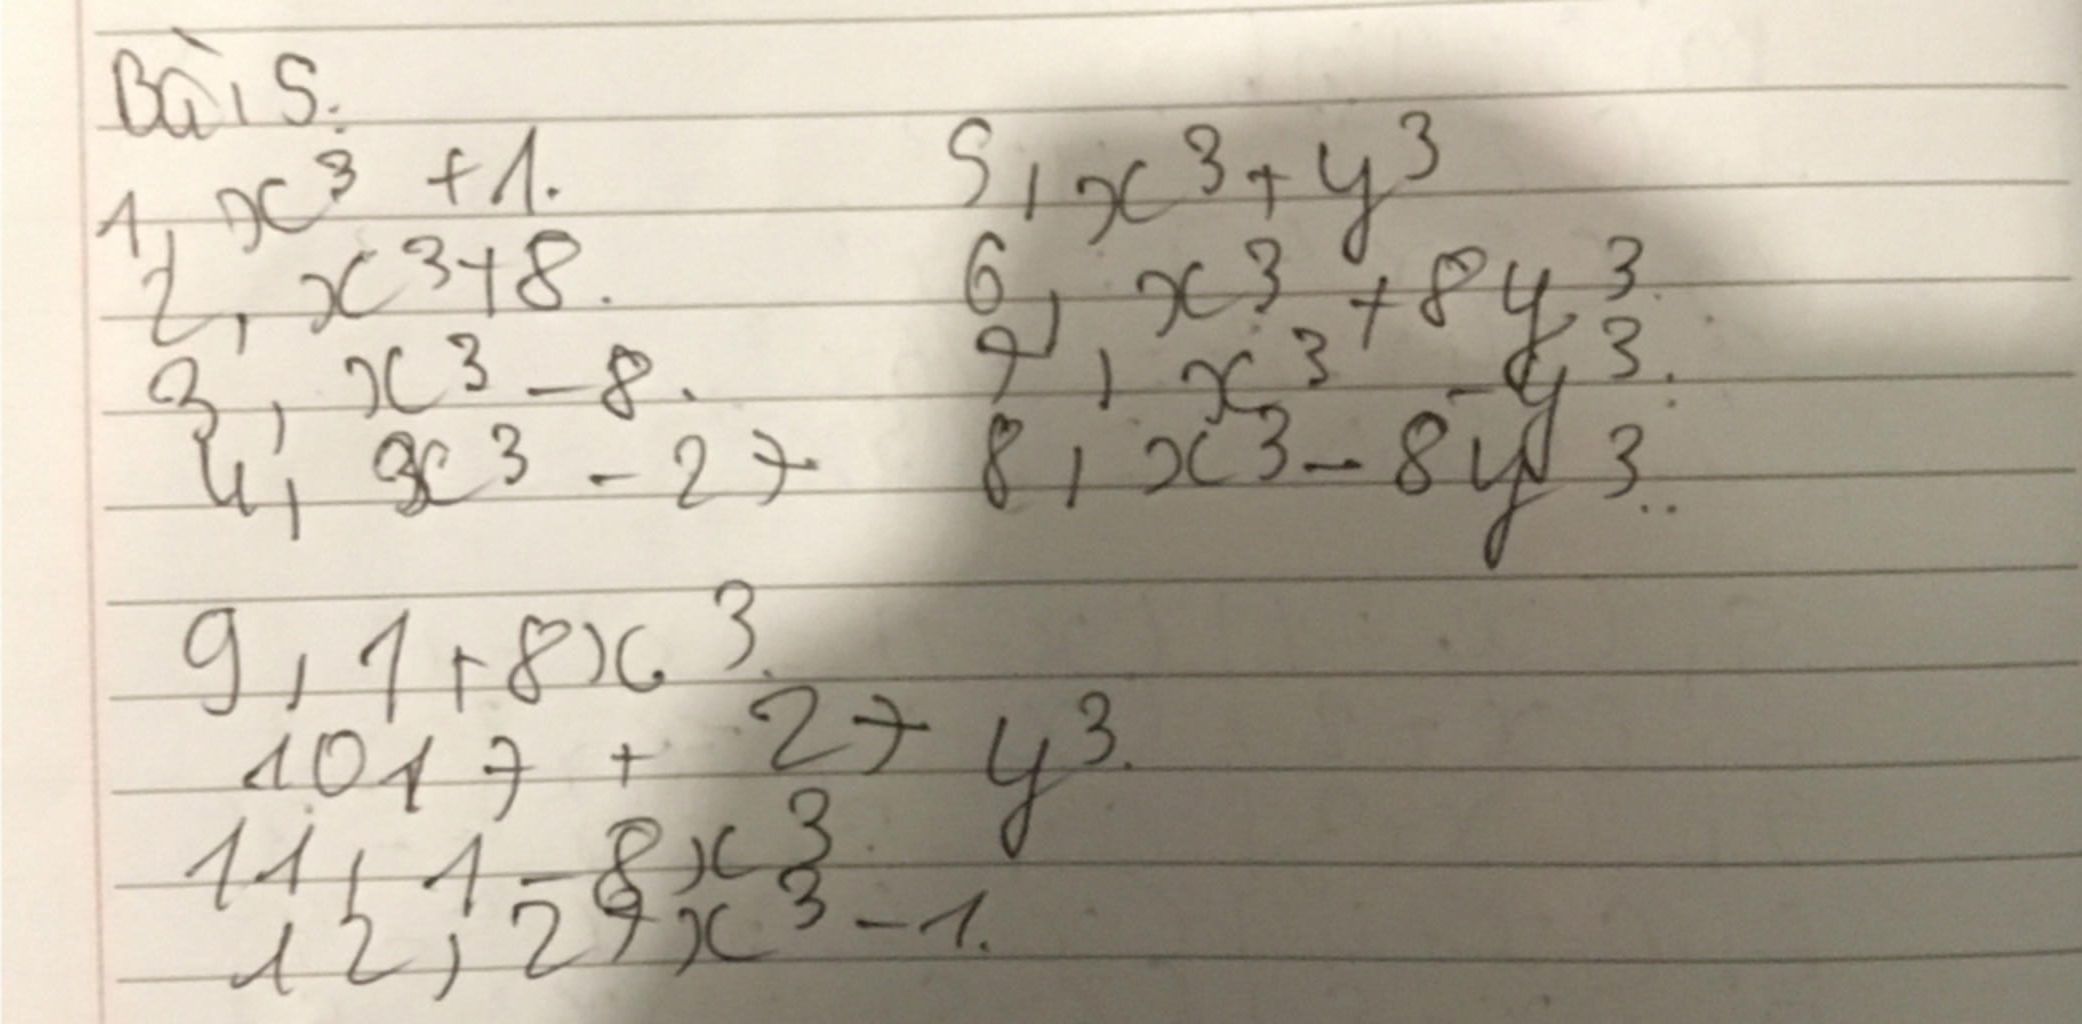 Bài 5.
1, x³ + 1.
2, x³+8.
3, x³ - 8.
4, x³ - 27
5, x³ + y³
6, x³ + 8y³.
7, x³ - y³.
8, x³ - 8y³..
9, 1 + 8x³.
10, 7 + 27 y³.
11, 1 - 8x³
12, 27x³ - 1.